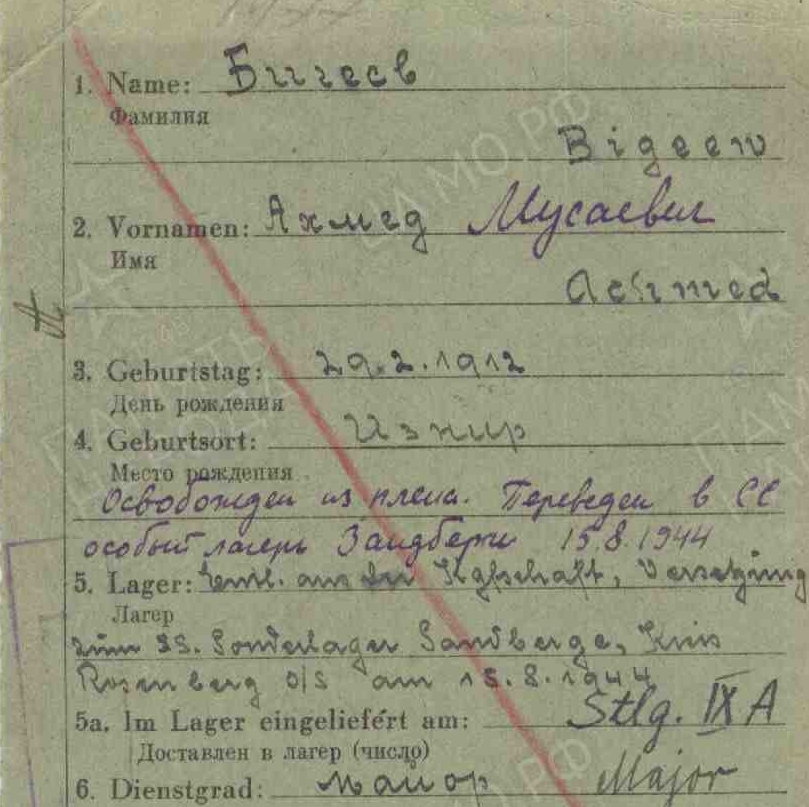 1. Name: Бигеев
Фамилия
Bigeew
2. Vornamen: Ахмед Мусаевич
Имя
Achmed
3. Geburtstag: 29.2.1912
День рождения
4. Geburtsort: Измир
Место рождения
Освобожден из плена. Переведен в СС
особый лагерь Зандберге 15.8.1944
5. Lager: Entl. aus der Kgfschaft, Versetzung
Лагер
zum SS. Sonderlager Sandberge, Kreis
Rosenberg O/S am 15.8.1944
5a. Im Lager eingeliefért am: Stlg. IX A
Доставлен в лагер (число)
6. Dienstgrad: майор Major